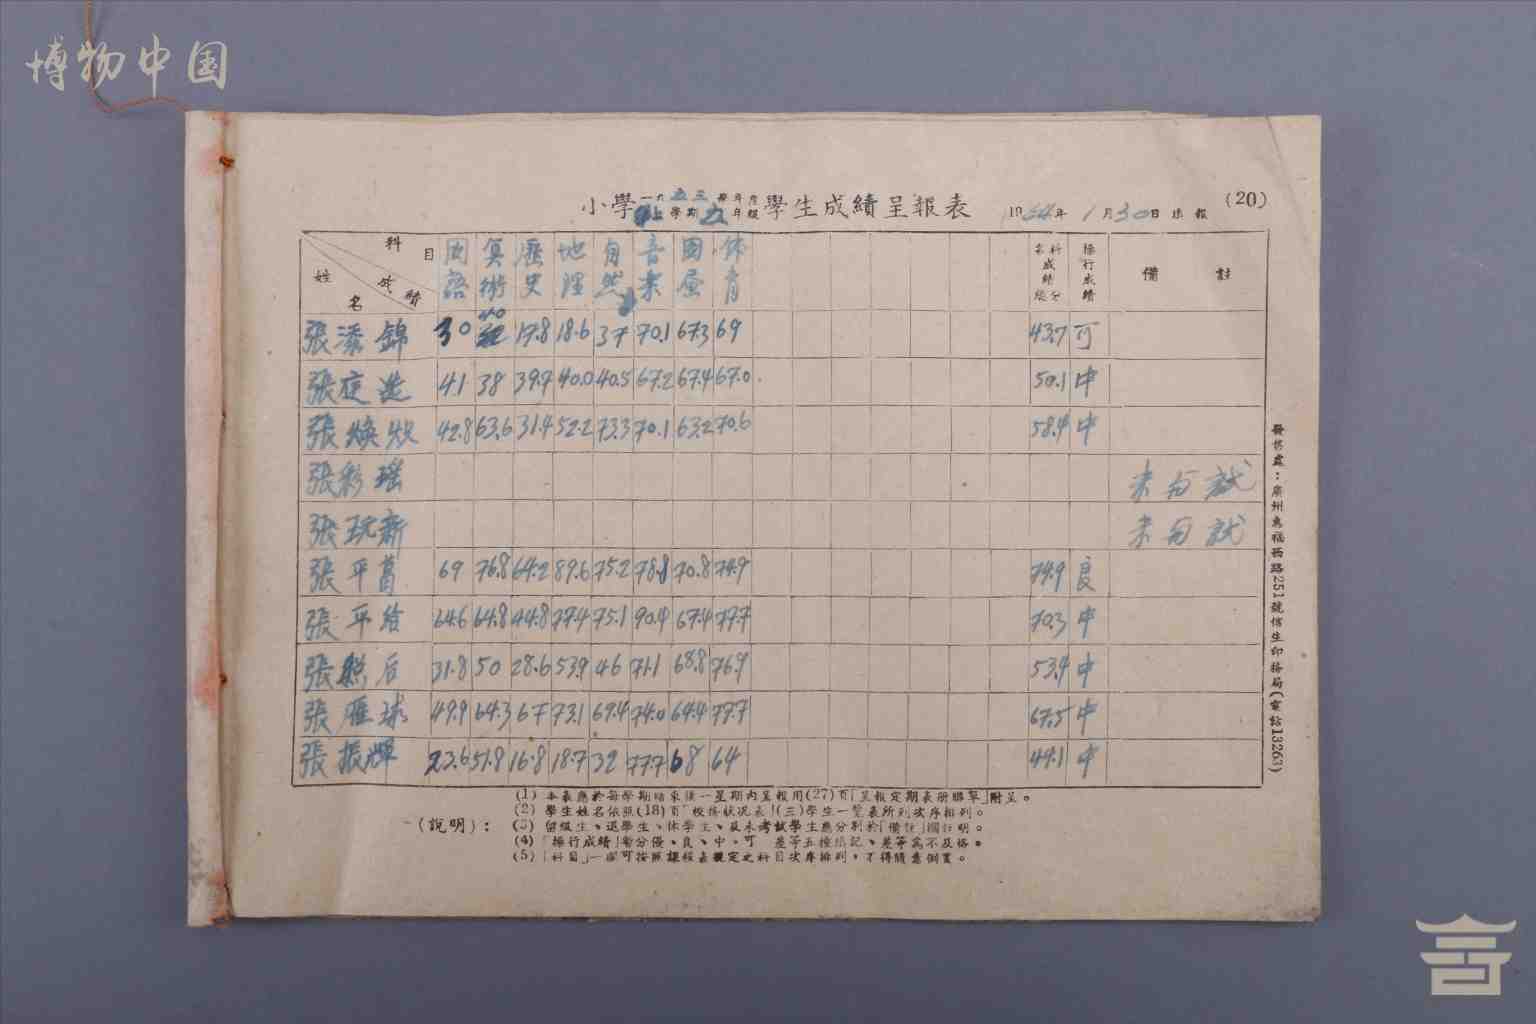 博物中国
(20)
小學一九五三學年度上學期五年級學生成績呈報表 1954年1月30日 填報
科目 成績 姓名 國語 算術 歷史 地理 自然 音樂 圖畫 体育 各科成績積分 操行成績 備註
張添錦 30 40 17.8 18.6 37 70.1 67.3 69 43.7 可
張庭造 41 38 39.7 40.0 40.5 67.2 67.4 67.0 50.1 中
張煥 42.8 63.6 31.4 52.2 73.3 70.1 63.2 70.6 58.4 中
張彩瑤 未与試
張玩新 未与試
張平葛 69 76.8 64.2 89.6 75.2 78.8 70.8 74.9 74.9 良
張平给 64.6 64.8 44.8 77.4 75.1 90.4 67.4 77.7 70.3 中
張熊后 31.8 50 28.6 53.9 46 71.1 68.8 76.9 53.4 中
張雁球 49.9 64.3 67 73.1 69.4 74.0 64.4 77.7 67.5 中
張振輝 23.6 51.8 16.8 18.7 32 77.7 68 64 44.1 中
(說明)：
(1) 本表應於每學期結束後一星期內呈報用(27)頁「呈報定期表册聯單」附呈。
(2) 學生姓名依照(18)頁「校務狀况表」(三)學生一覽表所列次序排列。
(3) 留級生、退學生、休學生、及未考試學生應分别於「備註」欄註明。
(4)「操行成績」需分優、良、中、可、差等五種填記、差等爲不及格。
(5)「科目」一欄可按照課程表規定之科目次序排列，不得隨意倒置。
發售處：廣州惠福西路251號信生印務局(電話13263)